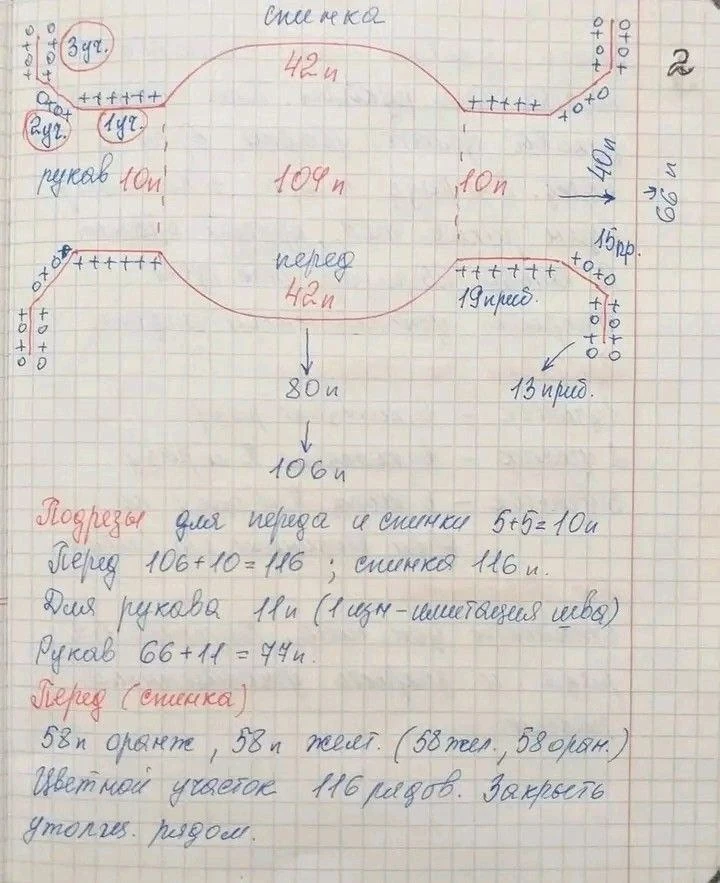 спинка
2
3уч.
42п
2уч.
1уч.
+ + + + + +
+ + + + +
рукав 10п 104п 10п
40п
66п
перед
42п
+ + + + + +
+ + + + + +
15пр.
19приб.
13приб.
80п
106п
Подрезы для переда и спинки 5+5=10п
Перед 106+10=116 ; спинка 116п.
Для рукава 11п (1изн-имитация шва)
Рукав 66+11=77п.
Перед (спинка)
58п оранж, 58п желт. (58жел., 58оран.)
Цветной участок 116 рядов. Закрыть
утолщ. рядом.